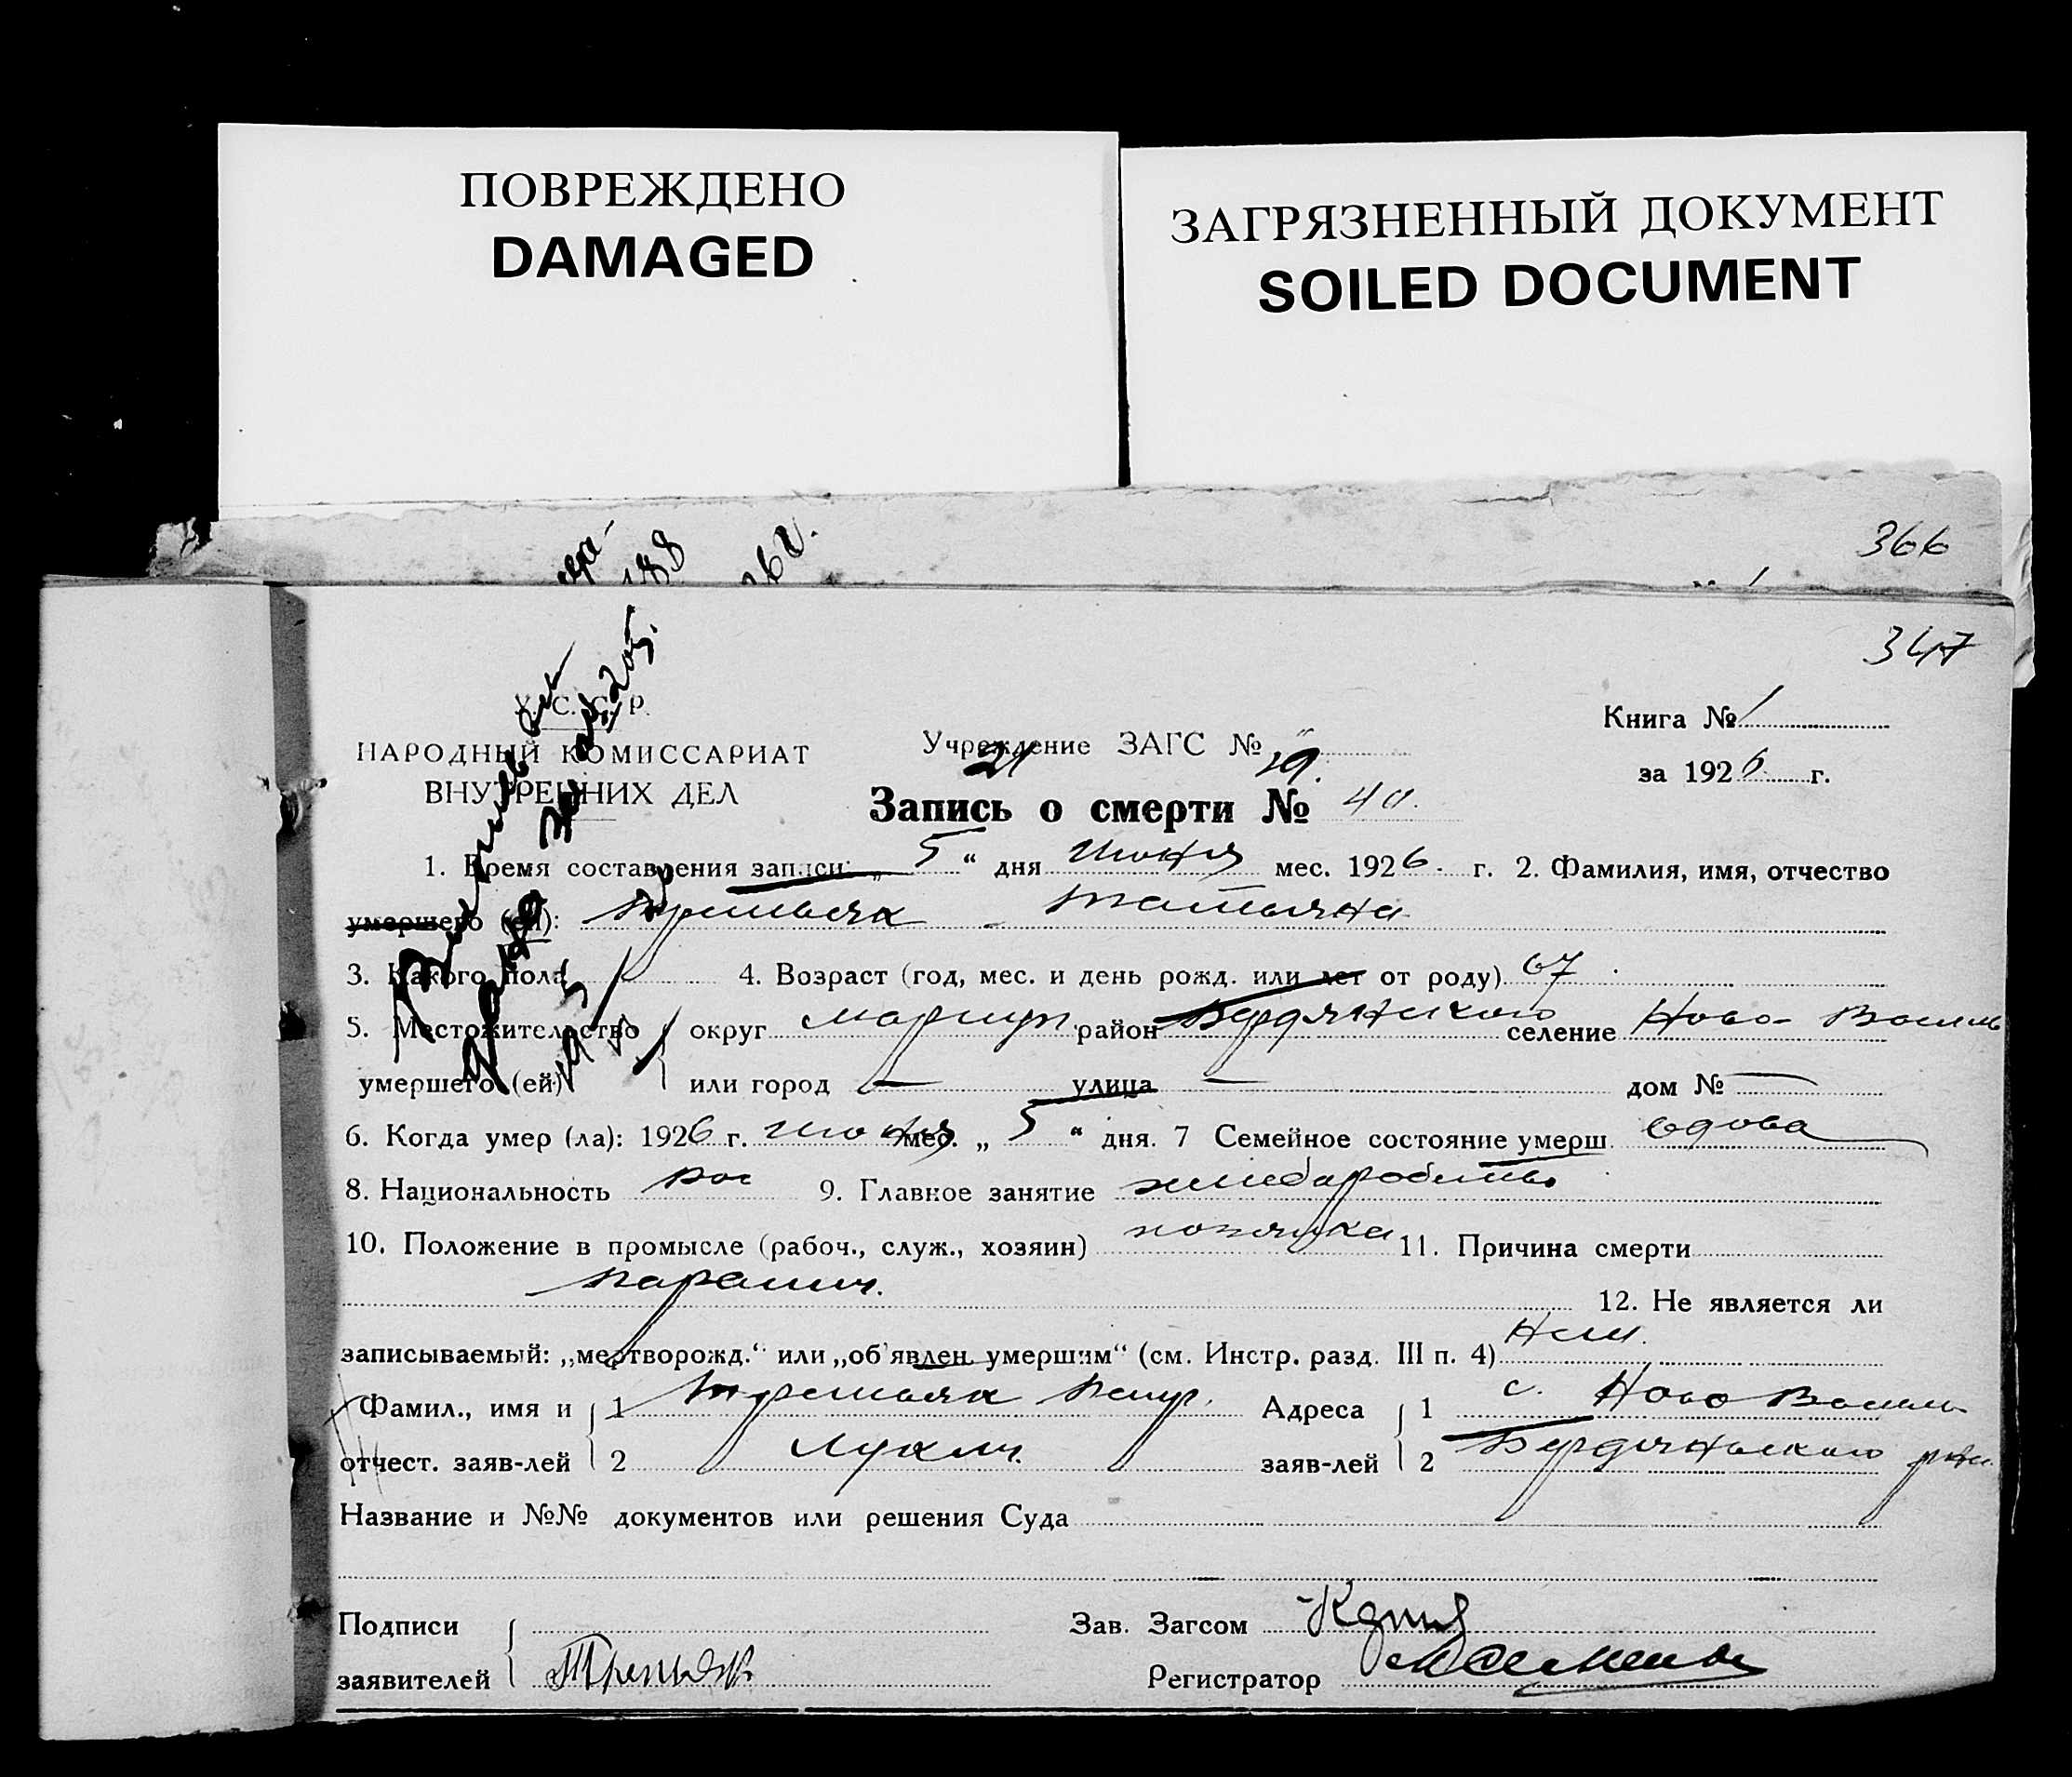 ПОВРЕЖДЕНО
DAMAGED
ЗАГРЯЗНЕННЫЙ ДОКУМЕНТ
SOILED DOCUMENT
366
347
У. С. С. Р.
НАРОДНЫЙ КОМИССАРИАТ
ВНУТРЕННИХ ДЕЛ
Учреждение ЗАГС №
Книга № 1
за 1926 г.
Запись о смерти № 40.
1. Время составления записи: „ 5 “ дня Июня мес. 1926 г. 2. Фамилия, имя, отчество
умершего (ей): Третьяк Татьяна
3. Какого пола 4. Возраст (год, мес. и день рожд. или лет от роду) 67.
5. Местожительство округ Мариуп. район Бердянского селение Ново-Василь
умершего (ей) или город — улица — дом № —
6. Когда умер (ла): 1926 г. Июня мес. „ 5 “ дня. 7 Семейное состояние умерш. вдова
8. Национальность рос 9. Главное занятие
10. Положение в промысле (рабоч., служ., хозяин) хозяйка 11. Причина смерти
паралич.
12. Не является ли
записываемый: „мертворожд.“ или „об'явлен умершим“ (см. Инстр. разд. III п. 4) Нет.
Фамил., имя и 1 Третьяк Петр. Адреса 1 с. Ново Василь
отчест. заяв-лей 2 Лукич. заяв-лей 2 Бердянского
Название и №№ документов или решения Суда
Подписи Зав. Загсом
заявителей Третьяк Регистратор